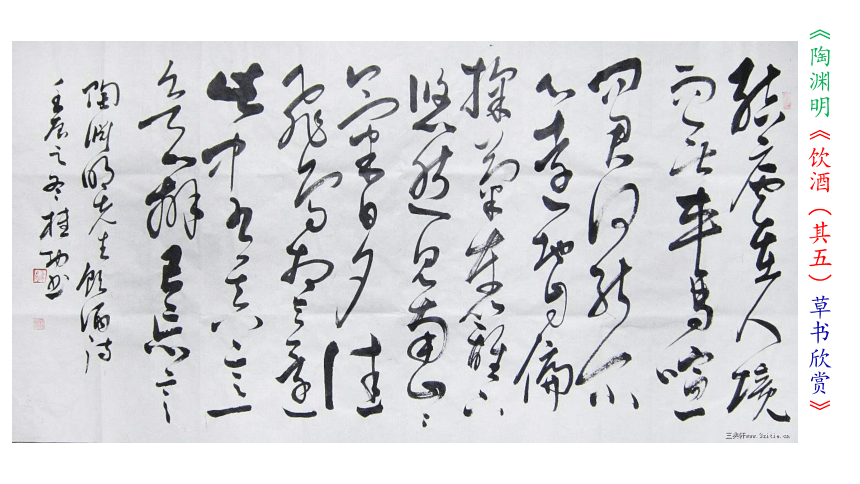 《陶渊明《饮酒（其五）草书欣赏》
結廬在人境
而无車馬喧
問君何能尔
心遠地自偏
採菊東籬下
悠然見南山〻
氣日夕佳
飛鳥相与還
此中有真意
欲辨已忘言
陶渊明先生飲酒詩
壬辰之冬桂功书
www.2zitie.cn